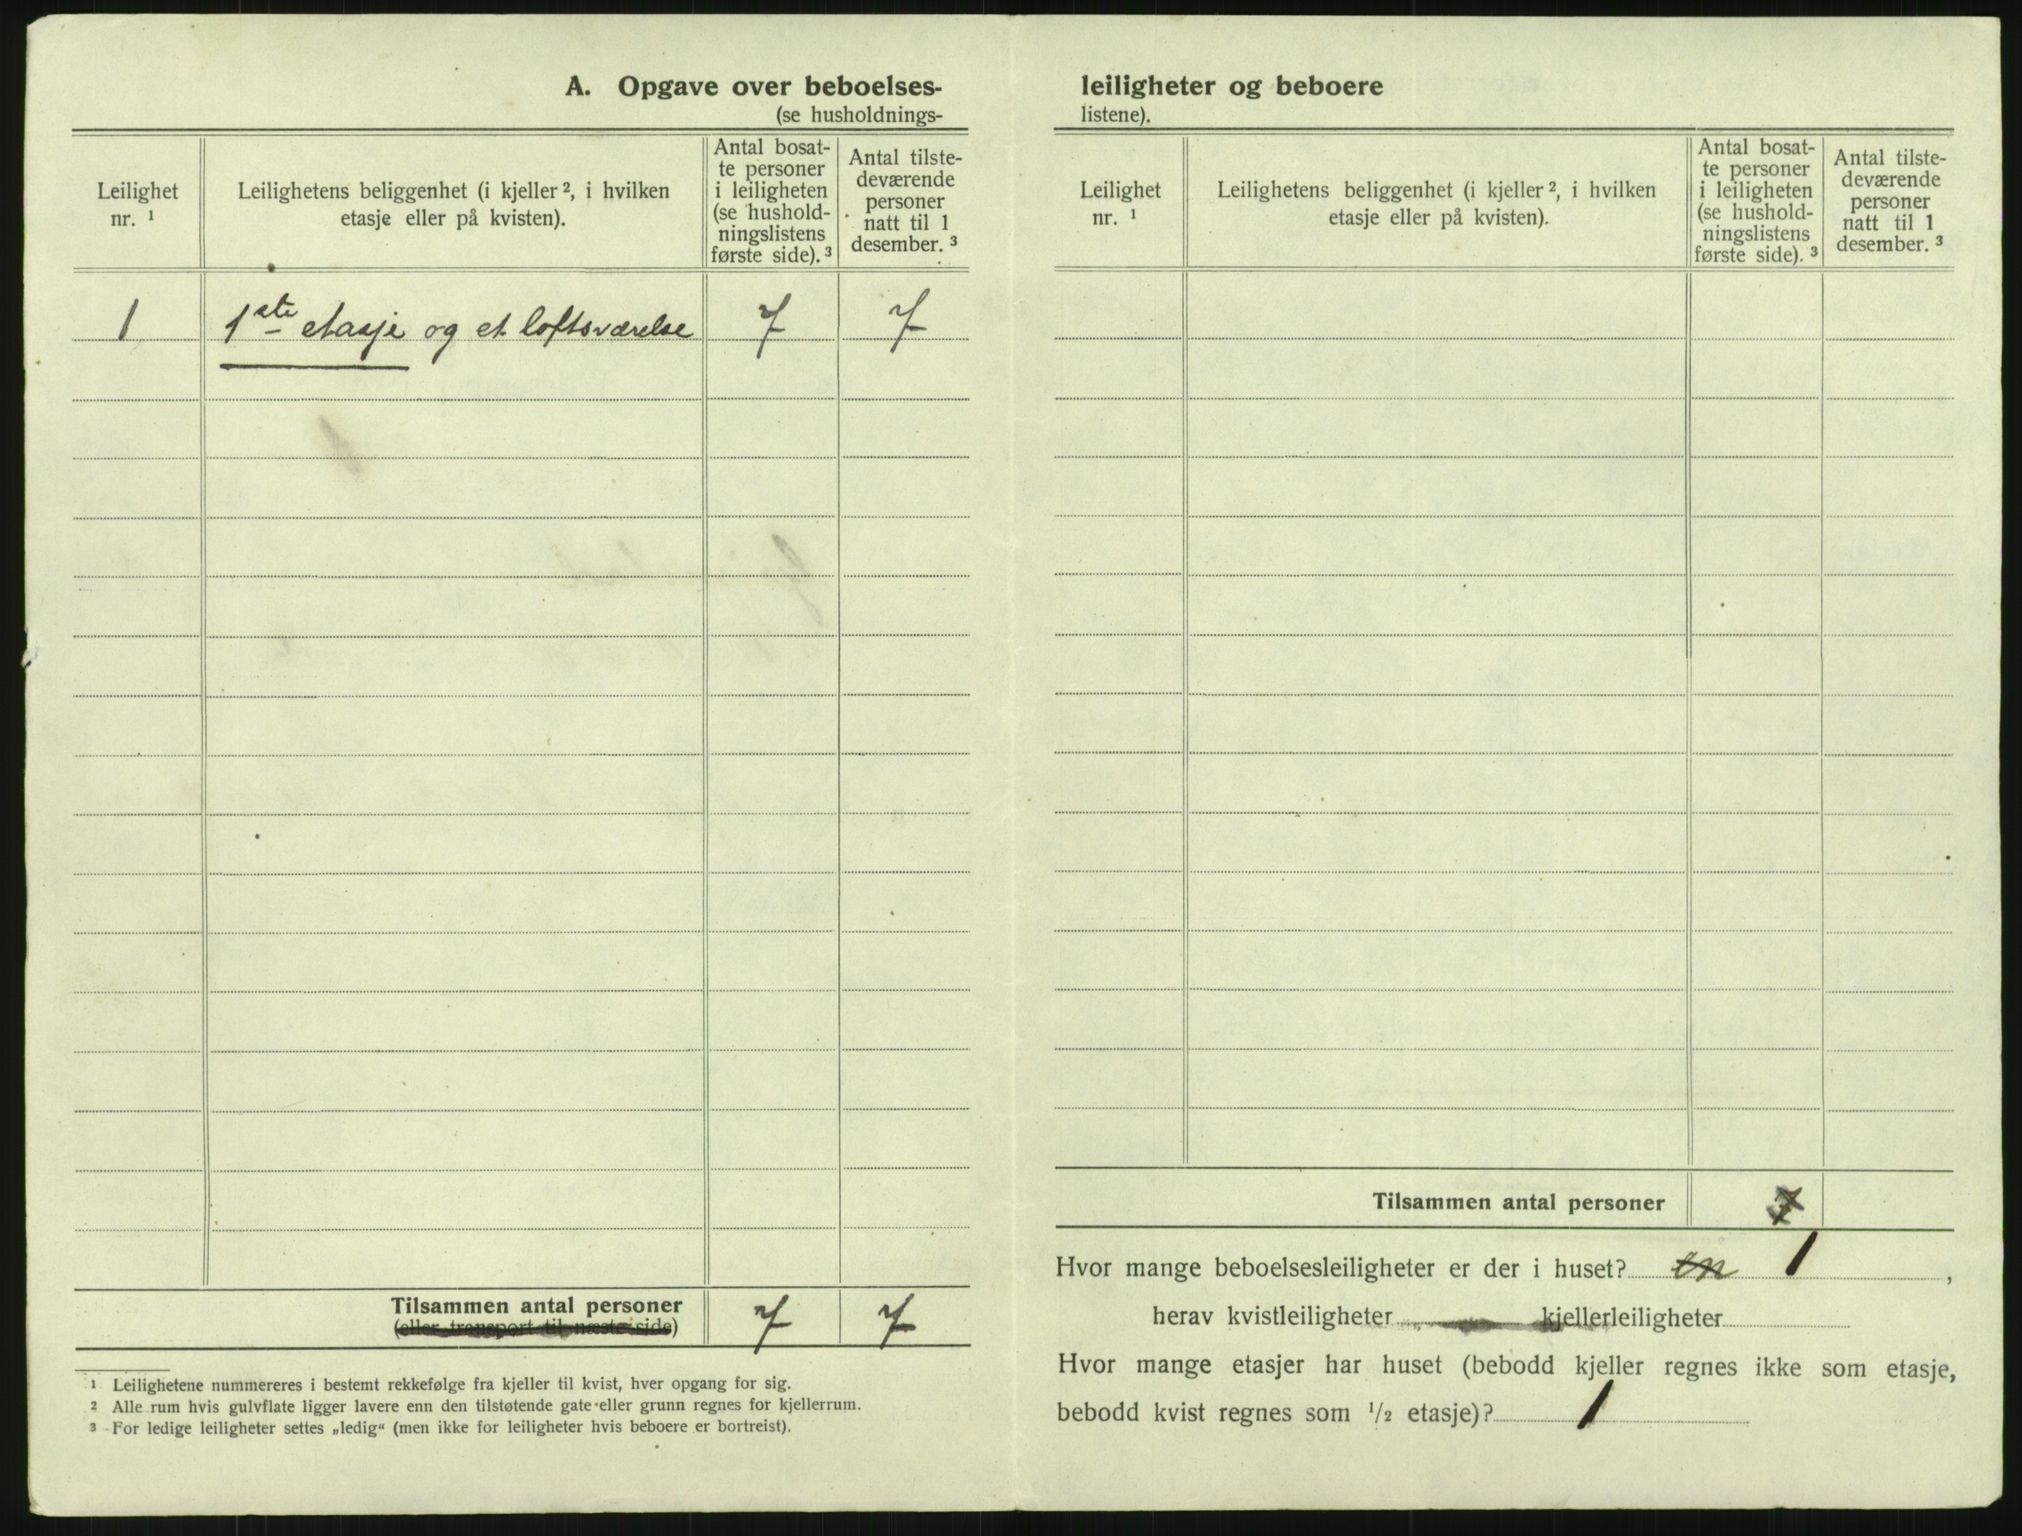 A. Opgave over beboelses-
(se husholdnings-
Leilighet
nr. ¹
Leilighetens beliggenhet (i kjeller ², i hvilken
etasje eller på kvisten).
Antal bosat-
te personer
i leiligheten
(se hushold-
ningslistens
første side). ³
Antal tilste-
deværende
personer
natt til 1
desember. ³
1 1ste etasje og et loftsværelse 7 7
Tilsammen antal personer 7 7
(eller transport til næste side)
¹ Leilighetene nummereres i bestemt rekkefølge fra kjeller til kvist, hver opgang for sig.
² Alle rum hvis gulvflate ligger lavere enn den tilstøtende gate eller grunn regnes for kjellerrum.
³ For ledige leiligheter settes „ledig“ (men ikke for leiligheter hvis beboere er bortreist).
leiligheter og beboere
listene).
Leilighet
nr. ¹
Leilighetens beliggenhet (i kjeller ², i hvilken
etasje eller på kvisten).
Antal bosat-
te personer
i leiligheten
(se hushold-
ningslistens
første side). ³
Antal tilste-
deværende
personer
natt til 1
desember. ³
Tilsammen antal personer 7
Hvor mange beboelsesleiligheter er der i huset? en 1,
herav kvistleiligheter kjellerleiligheter
Hvor mange etasjer har huset (bebodd kjeller regnes ikke som etasje,
bebodd kvist regnes som ½ etasje)? 1